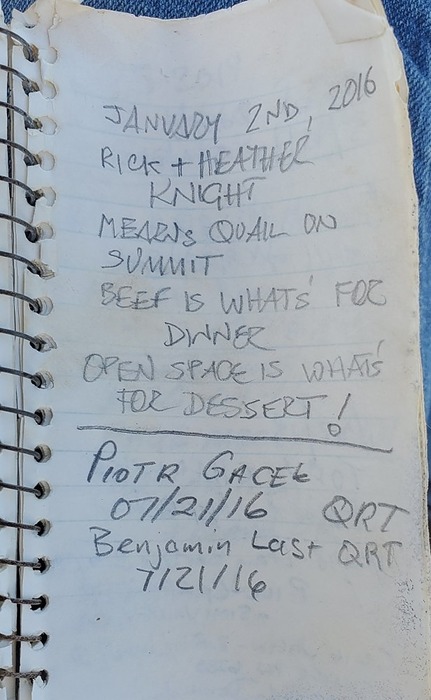 JANUARY 2ND, 2016
RICK + HEATHER
KNIGHT
MEARNS QUAIL ON
SUMMIT
BEEF IS WHATS' FOR
DINNER
OPEN SPACE IS WHAT'S
FOR DESSERT!
PIOTR GACEK
07/21/16 QRT
Benjamin Last QRT
7/21/16